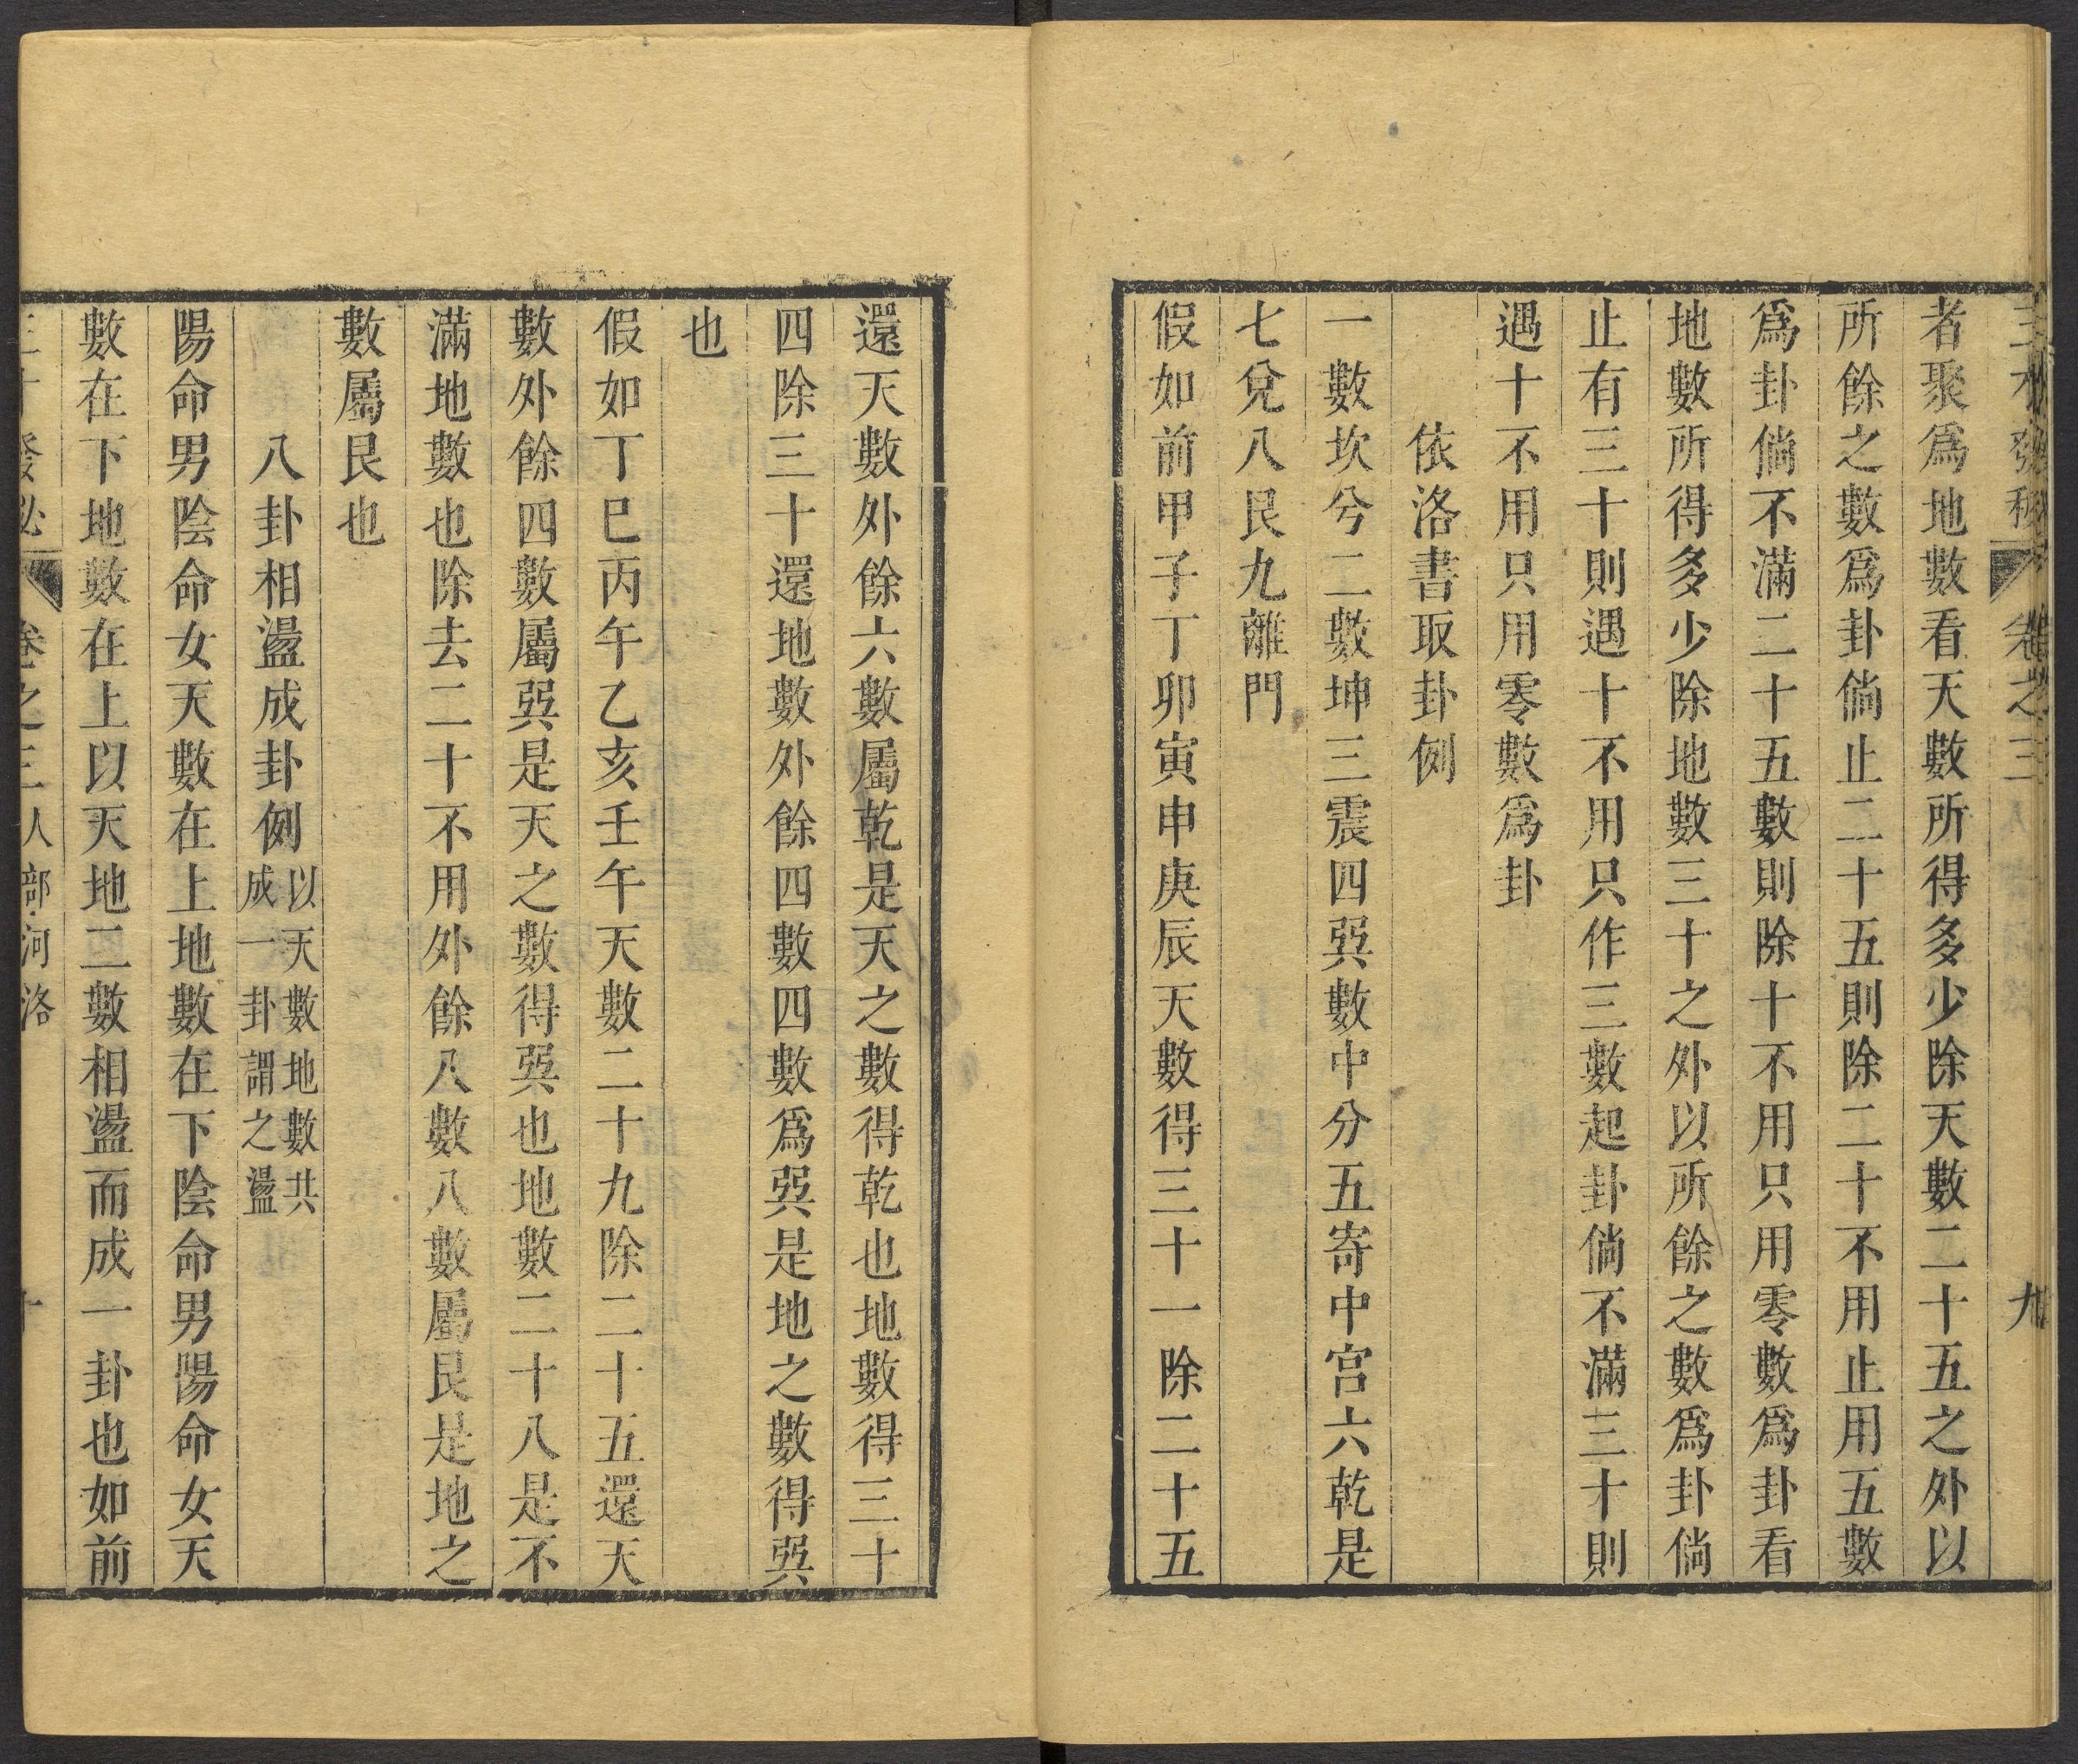 三才發秘 卷之三 九
者聚爲地數看天數所得多少除天數二十五之外以
所餘之數爲卦倘止二十五則除二十不用止用五數
爲卦倘不滿二十五數則除十不用只用零數爲卦看
地數所得多少除地數三十之外以所餘之數爲卦倘
止有三十則遇十不用只作三數起卦倘不滿三十則
遇十不用只用零數爲卦
依洛書取卦例
一數坎兮二數坤三震四巽數中分五寄中宮六乾是
七兌八艮九離門
假如前甲子丁卯寅申庚辰天數得三十一除二十五
還天數外餘六數屬乾是天之數得乾也地數得三十
四除三十還地數外餘四數四數爲巽是地之數得巽
也
假如丁巳丙午乙亥壬午天數二十九除二十五還天
數外餘四數屬巽是天之數得巽也地數二十八是不
滿地數也除去二十不用外餘八數八數屬艮是地之
數屬艮也
八卦相盪成卦例 以天數地數共
成一卦謂之盪
陽命男陰命女天數在上地數在下陰命男陽命女天
數在下地數在上以天地二數相盪而成一卦也如前
三才發秘 卷之三 人部 河洛 十